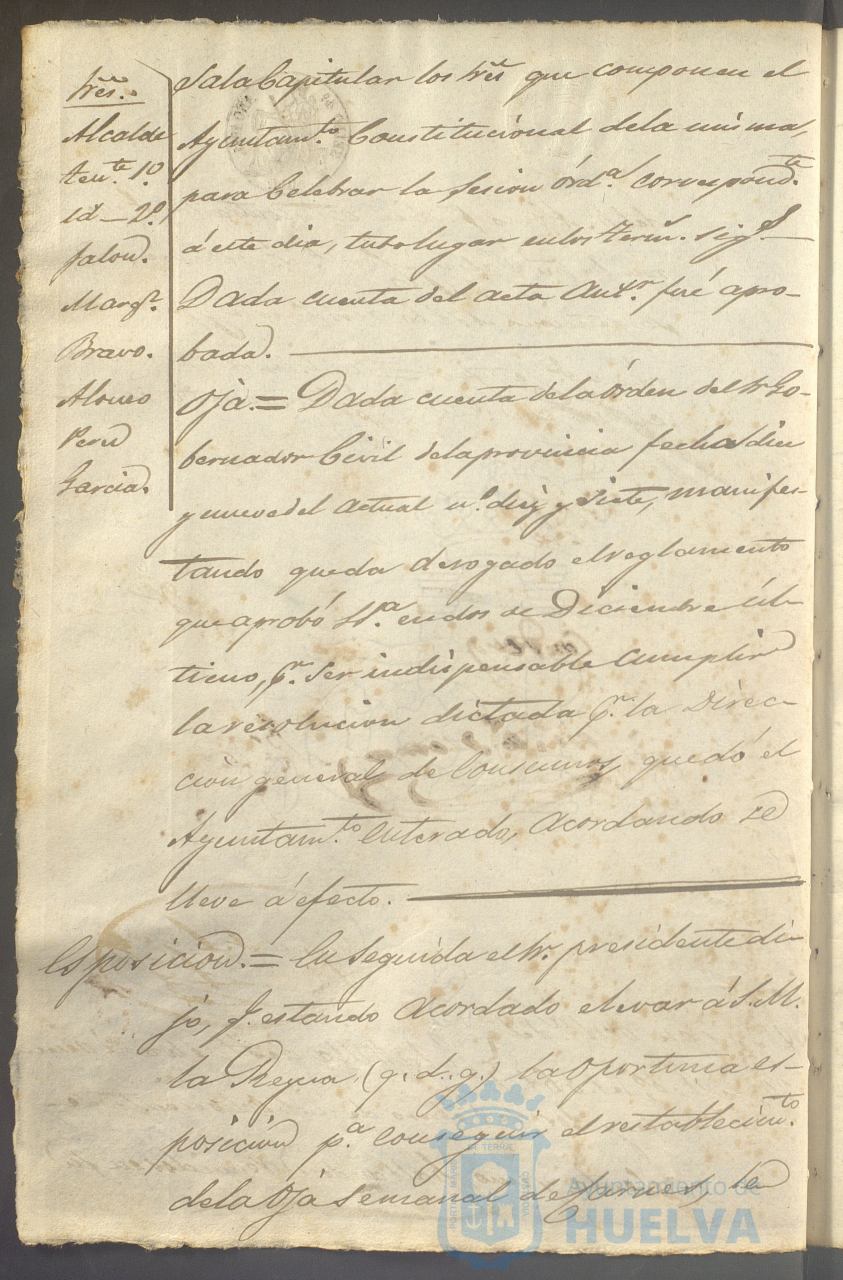 Sres.
Alcalde
Tente. 1º
id - 2º
Jalon.
Marqz.
Bravo.
Alonso
Perez
Garcia.
Sala Capitular los Sres que componen el
Ayuntamto. Constitucional dela misma,
para Celebrar la Sesion órda. correspondte.
á este dia, tubo lugar en los Term. sigs.
Dada cuenta del acta Antr. fué apro-
bada.
Oja. = Dada cuenta dela órden del Sr Go-
bernador Civil dela provincia fecha diez
y nueve del actual nº. diez y siete, manifes-
tando queda derogado el reglamento
que aprobó SSa. en dos de Diciembre úl-
timo, pr. ser indispensable cumplir
la resolucion dictada pr. la Direc-
cion general de Consumos, quedó el
Ayuntamto. enterado, acordando se
lleve á efecto.
Esposicion. = En Seguida el Sr. presidente di-
jo, q. estando acordado elevar á S. M.
la Reyna (q. d. g.) la oportuna es-
posicion pa. conseguir el restablecimto.
dela Oja semanal de Carnes, se
Ayuntamiento de
HUELVA